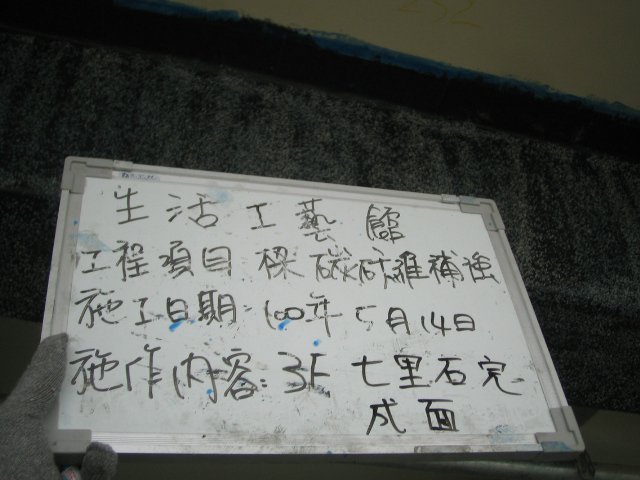 232
生活工藝館
工程項目:樑碳矸維補強
施工日期:100年5月14日
施作内容:3F 七里石完
成面